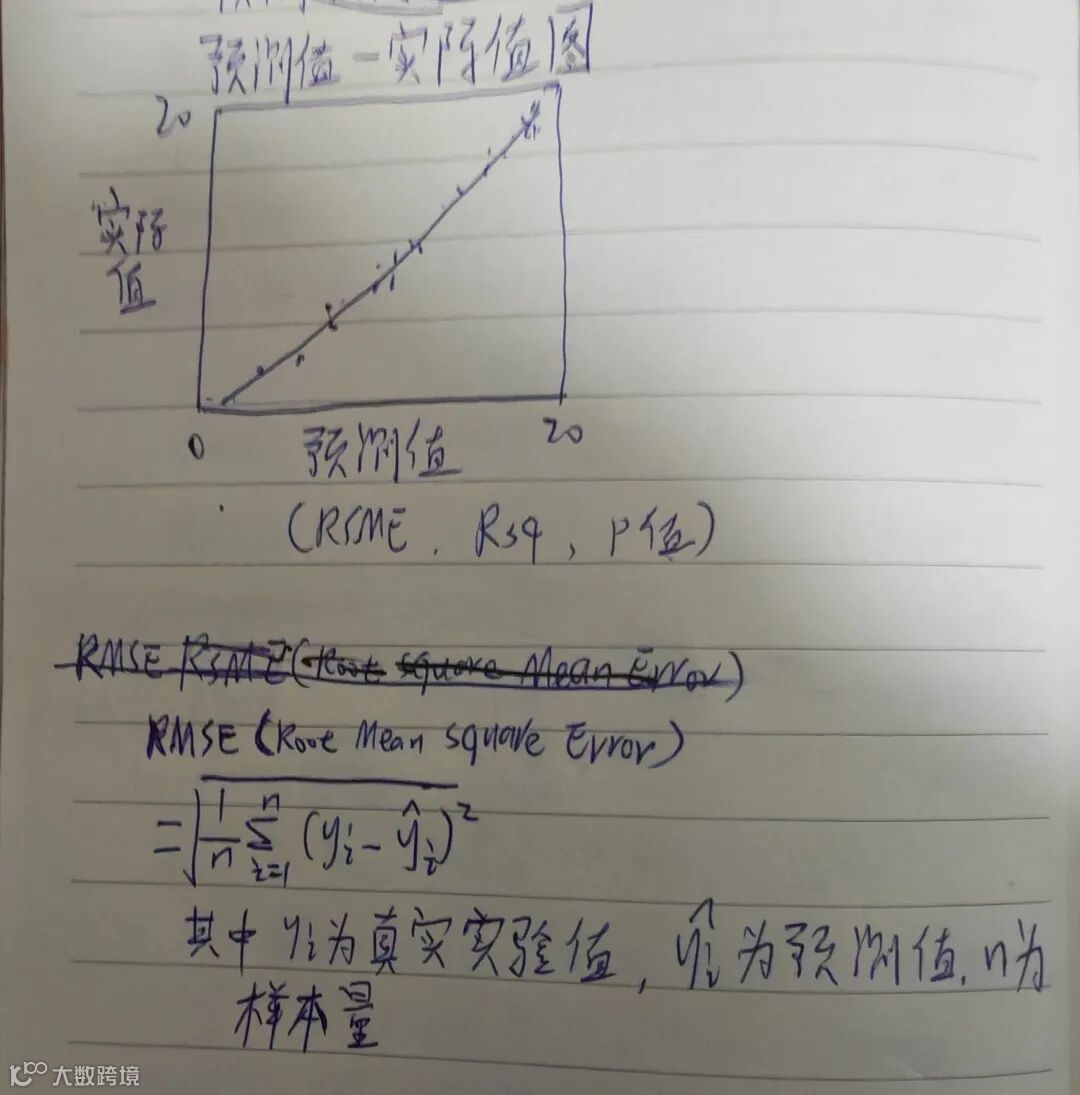 预测值-实际值图
20
实际
值
0
20
预测值
(RSME, Rsq, P值)
RMSE RSME (Root square Mean Error)
RMSE (Root Mean square Error)
=√(1/n ∑ⁿᵢ₌₁ (yᵢ-ŷᵢ)²)
其中yᵢ为真实实验值, ŷᵢ为预测值, n为
样本量
大数跨境